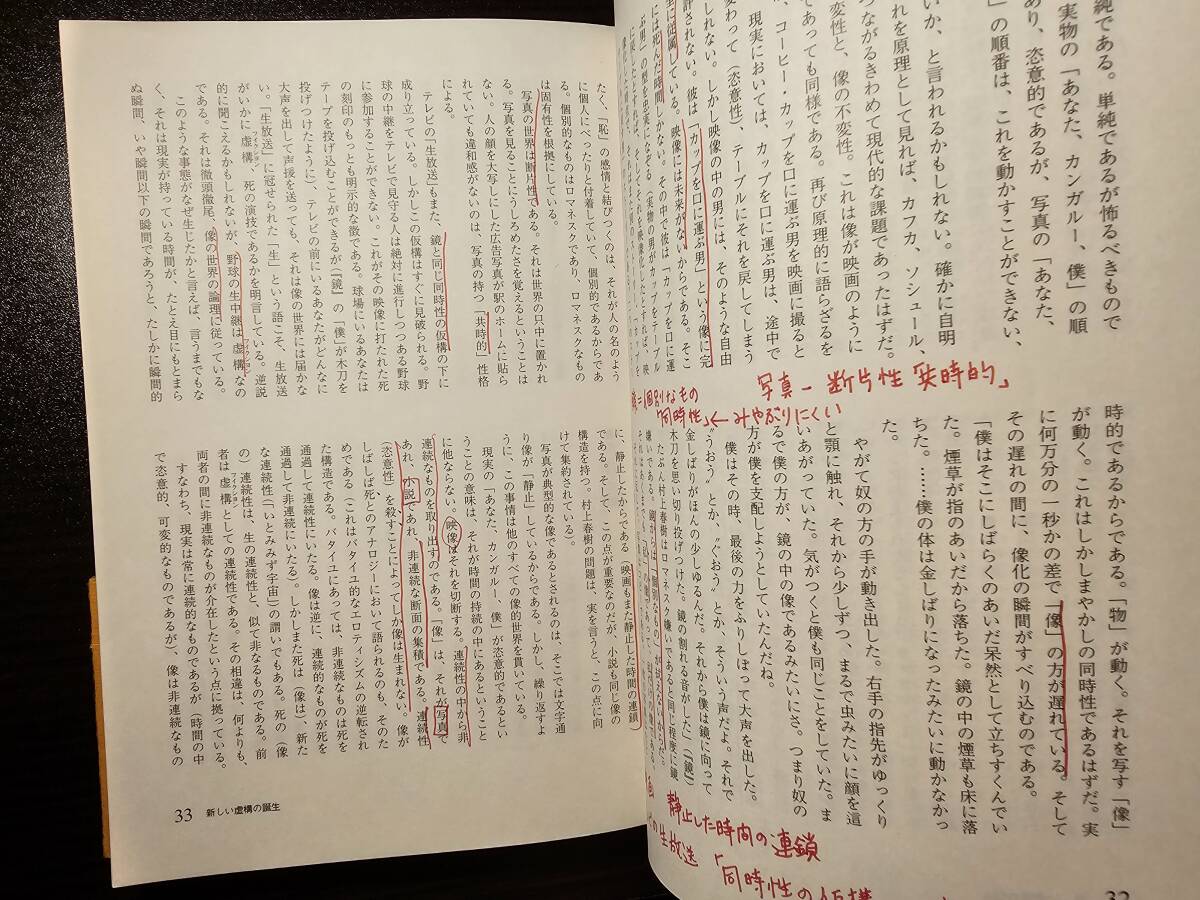 純である。単純であるが怖るべきもので
実物の「あなた、カンガルー、僕」の順
あり、恣意的であるが、写真の「あなた、
」の順番は、これを動かすことができない、
いか、と言われるかもしれない。確かに自明
れを原理として見れば、カフカ、ソシュール、
つながるきわめて現代的な課題であったはずだ。
変性と、像の不変性。これは像が映画のように
であっても同様である。再び原理的に語らざるを
、コーヒー・カップを口に運ぶ男を映画に撮ると
現実においては、カップを口に運ぶ男は、途中で
変わって（恣意性）、テーブルにそれを戻してしまう
しれない。しかし映像の中の男には、そのような自由
許されない。彼は「カップを口に運ぶ男」という像に完
全に従属している。映像には未来がないからである。そこ
には死んだ時間しかない。その中で彼は「カップを口に運
ぶ男」の型を忠実になぞる（実物の男がカップをテーブル
写真―断片性「共時的」
個別なもの
「同時性」←みやぶりにくい
時的であるからである。「物」が動く。それを写す「像」
が動く。これはしかしまやかしの同時性であるはずだ。実
に何万分の一秒かの差で「像」の方が遅れている。そして
その遅れの間に、像化の瞬間がすべり込むのである。
「僕はそこにしばらくのあいだ呆然として立ちすくんでい
た。煙草が指のあいだから落ちた。鏡の中の煙草も床に落
ちた。……僕の体は金しばりになったみたいに動かなかっ
た。
やがて奴の方の手が動き出した。右手の指先がゆっくり
と顎に触れ、それから少しずつ、まるで虫みたいに顔を這
いあがっていた。気がつくと僕も同じことをしていた。ま
るで僕の方が、鏡の中の像であるみたいにさ。つまり奴の
方が僕を支配しようとしていたんだね。
僕はその時、最後の力をふりしぼって大声を出した。
〝うおう〟とか、〝ぐおう〟とか、そういう声だよ。それで
金しばりがほんの少しゆるんだ。それから僕は鏡に向って
木刀を思い切り投げつけた。鏡の割れる音がした」（「鏡」）
たぶん村上春樹はロマネスク嫌いであると同じ程度に鏡
嫌いである。
静止した時間の連鎖
の生放送「同時性の仮構
32
たく、「恥」の感情と結びつくのは、それが人の名のよう
に個人にべったりと付着していて、個別的であるからであ
る。個別的なものはロマネスクであり、ロマネスクなもの
は固有性を根拠にしている。
写真の世界は断片性である。それは世界の只中に置かれ
る。写真を見ることにうしろめたさを覚えるということは
ない。人の顔を大写しにした広告写真が駅のホームに貼ら
れていても違和感がないのは、写真の持つ「共時的」性格
による。
テレビの「生放送」もまた、鏡と同じ同時性の仮構の下に
成り立っている。しかしこの仮構はすぐに見破られる。野
球の中継をテレビで見守る人は絶対に進行しつつある野球
に参加することができない。これがその映像に打たれた死
の刻印のもっとも明示的な徴である。球場にいるあなたは
テープを投げ込むことができるが（『鏡』の「僕」が木刀を
投げつけたように）、テレビの前にいるあなたがどんなに
大声を出して声援を送っても、それは像の世界には届かな
い。「生放送」に冠せられた「生」という語こそ、生放送
がいかに虚構フィクション、死の演技であるかを明言している。逆説
的に聞こえるかもしれないが、野球の生中継は虚構フィクションなの
である。それは徹頭徹尾、像の世界の論理に従っている。
このような事態がなぜ生じたかと言えば、言うまでもな
く、それは現実が持っている時間が、たとえ目にもとまら
ぬ瞬間、いや瞬間以下の瞬間であろうと、たしかに瞬間的
に、静止したからである（映画もまた静止した時間の連鎖
である。そして、この点が重要なのだが、小説も同じ像の
構造を持つ。村上春樹の問題は、実を言うと、この点に向
けて集約されている）。
写真が典型的な像であるとされるのは、そこでは文字通
り像が「静止」しているからである。しかし、繰り返すよ
うに、この事情は他のすべての像的世界を貫いている。
現実の「あなた、カンガルー、僕」が恣意的であるとい
うことの意味は、それが時間の持続の中にあるということ
に他ならない。映像はそれを切断する。連続性の中から非
連続なものを取り出すのである。「像」は、それが写真で
あれ、小説であれ、非連続な断面の集積である。連続性
（恣意性）を殺すことによってしか像は生まれない。像が
しばしば死とのアナロジーにおいて語られるのも、そのた
めである（これはバタイユ的なエロティシズムの逆転され
た構造である。バタイユにあっては、非連続なものは死を
通過して連続性にいたる。像は逆に、連続的なものが死を
通過して非連続にいたる）。しかしまた死は（像は）、新た
な連続性（「いとみみず宇宙」）の謂いでもある。死の（像
の）連続性は、生の連続性と、似て非なるものである。前
者は虚構フィクションとしての連続性である。その相違は、何よりも、
両者の間に非連続なものが介在したという点に拠っている。
すなわち、現実は常に連続的なものであるが（時間の中
で恣意的、可変的なものであるが）、像は非連続なもの
33 新しい虚構の誕生